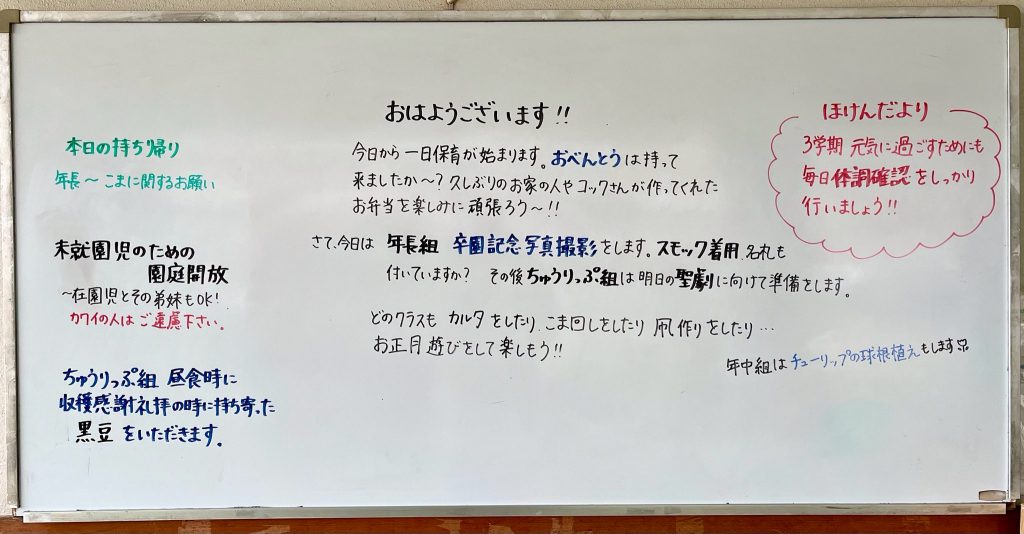 おはようございます!!
今日から一日保育が始まります。おべんとうは持って
来ましたか〜?久しぶりのお家の人やコックさんが作ってくれた
お弁当を楽しみに頑張ろう〜!!
さて、今日は 年長組 卒園記念写真撮影をします。スモック着用、名札も
付いていますか? その後ちゅうりっぷ組は明日の聖劇に向けて準備をします。
どのクラスも カルタをしたり、こま回しをしたり 凧作りをしたり…
お正月遊びをして楽しもう!!
年中組はチューリップの球根植えもします♡
本日の持ち帰り
年長〜こまに関するお願い
未就園児のための
園庭開放
〜在園児とその弟妹もOK!
カワイの人はご遠慮下さい。
ちゅうりっぷ組 昼食時に
収穫感謝礼拝の時に持ち寄った
黒豆をいただきます。
ほけんだより
3学期 元気に過ごすためにも
毎日体調確認をしっかり
行いましょう!!